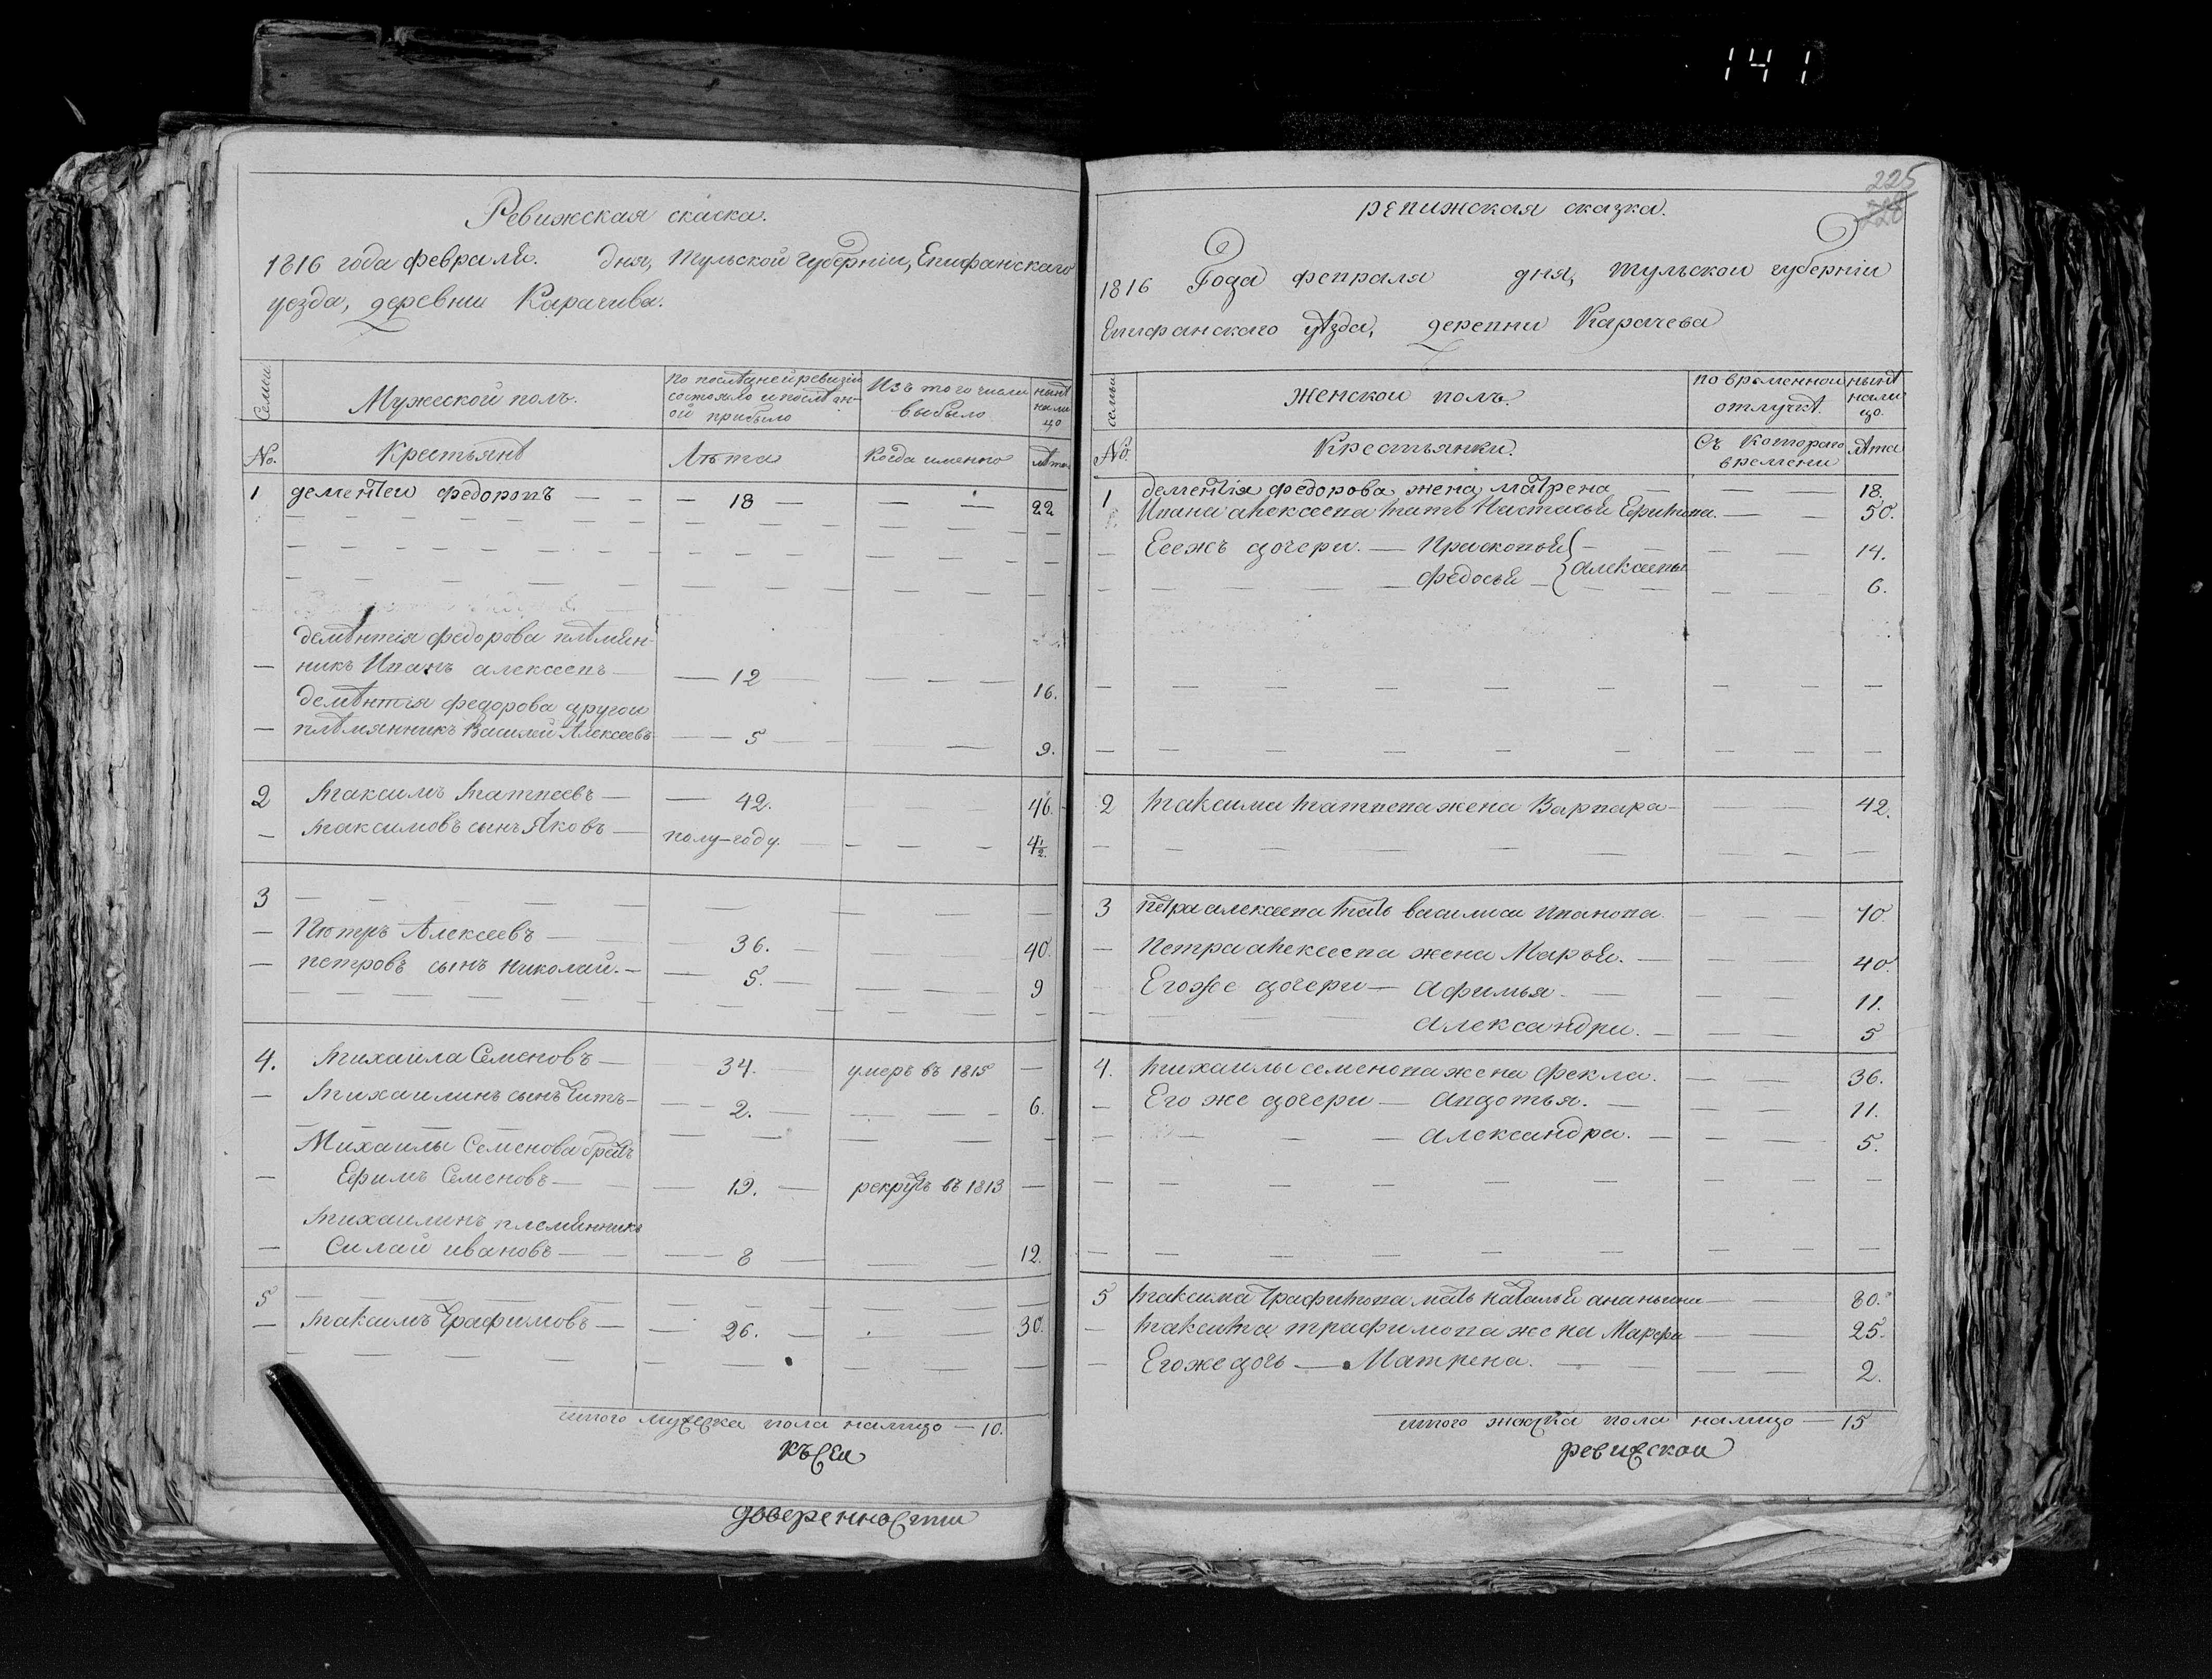 141
Ревижская скаска.
1816 года февраля. дня, Тульской губерніи, Епифанскаго
уезда, деревни Карачива.
Семьи
Мужеской полъ.
По послѣднейревизіи
состояло и послѣ он-
ой прибыло
Изъ того числа
выбыло
нынѣ
нали
цо
No.
Крестьянѣ
Лѣта
Когда именно
лѣта
1 дементеи федоровъ — — 18 — 22
демѣнтія федорова плѣмян-
— никъ Иванъ алексеевъ — 12 — 16.
демѣнтія федорова другои
— плѣмянникъ Василей Алексеевъ — 5 — 9.
2 Максимъ Матвеевъ — 42. 46.
— Максимовъ сынъ Яковъ — полу-году. — 4 1/2.
3
— Пютръ Алексеевъ — 36. — 40.
— петровъ сынъ Николай. — 5. — 9
4. Михаила Семеновъ — 34. умеръ въ 1815 —
— Михаилинъ сынъ Титъ — 2. — 6.
Михаилы Семенова братъ
— Ефимъ Семеновъ — 19. — рекрутъ въ 1813 —
Михаилинъ племянникъ
— Силай ивановъ — 8 — 12.
5
— Максимъ Трафимовъ — 26. — 30.
итого мужеска пола налицо — 10.
къ сеи
доверенности
225
ревижская сказка.
1816 Года февраля дня, тульскои губерніи
Епифанскаго уѣзда, деревни Карачева
семьи
Женскои полъ.
по врѣменнои
отлучкѣ.
нынѣ
нали
цо.
No.
Крестьянки.
Съ котораго
времени
лѣта
1 дементія федорова жена матрена — 18.
Ивана алексеева мать Настасья Ефимова. — 50.
— Ееежъ дочери. — Прасковья — 14.
федосья — алексеевы 6.
2 Максима Матвева жена Варвара — 42.
3 петра алексеева мать василиса Иванова. — 70.
— Петра алексеева жена Марья. — 40.
Егоже дочери — Афимья. — 11.
Александра. — 5
4. Михаилы семенова жена фекла. — 36.
— Его же дочери — Авдотья. — 11.
— Александра. — 5.
5 Максима Трафимова мать Наталья ананьина 80.
— Максима трафимова жена Марфа — 25.
— Егоже дочь — Матрена. — 2.
итого женска пола налицо — 15
ревижскои